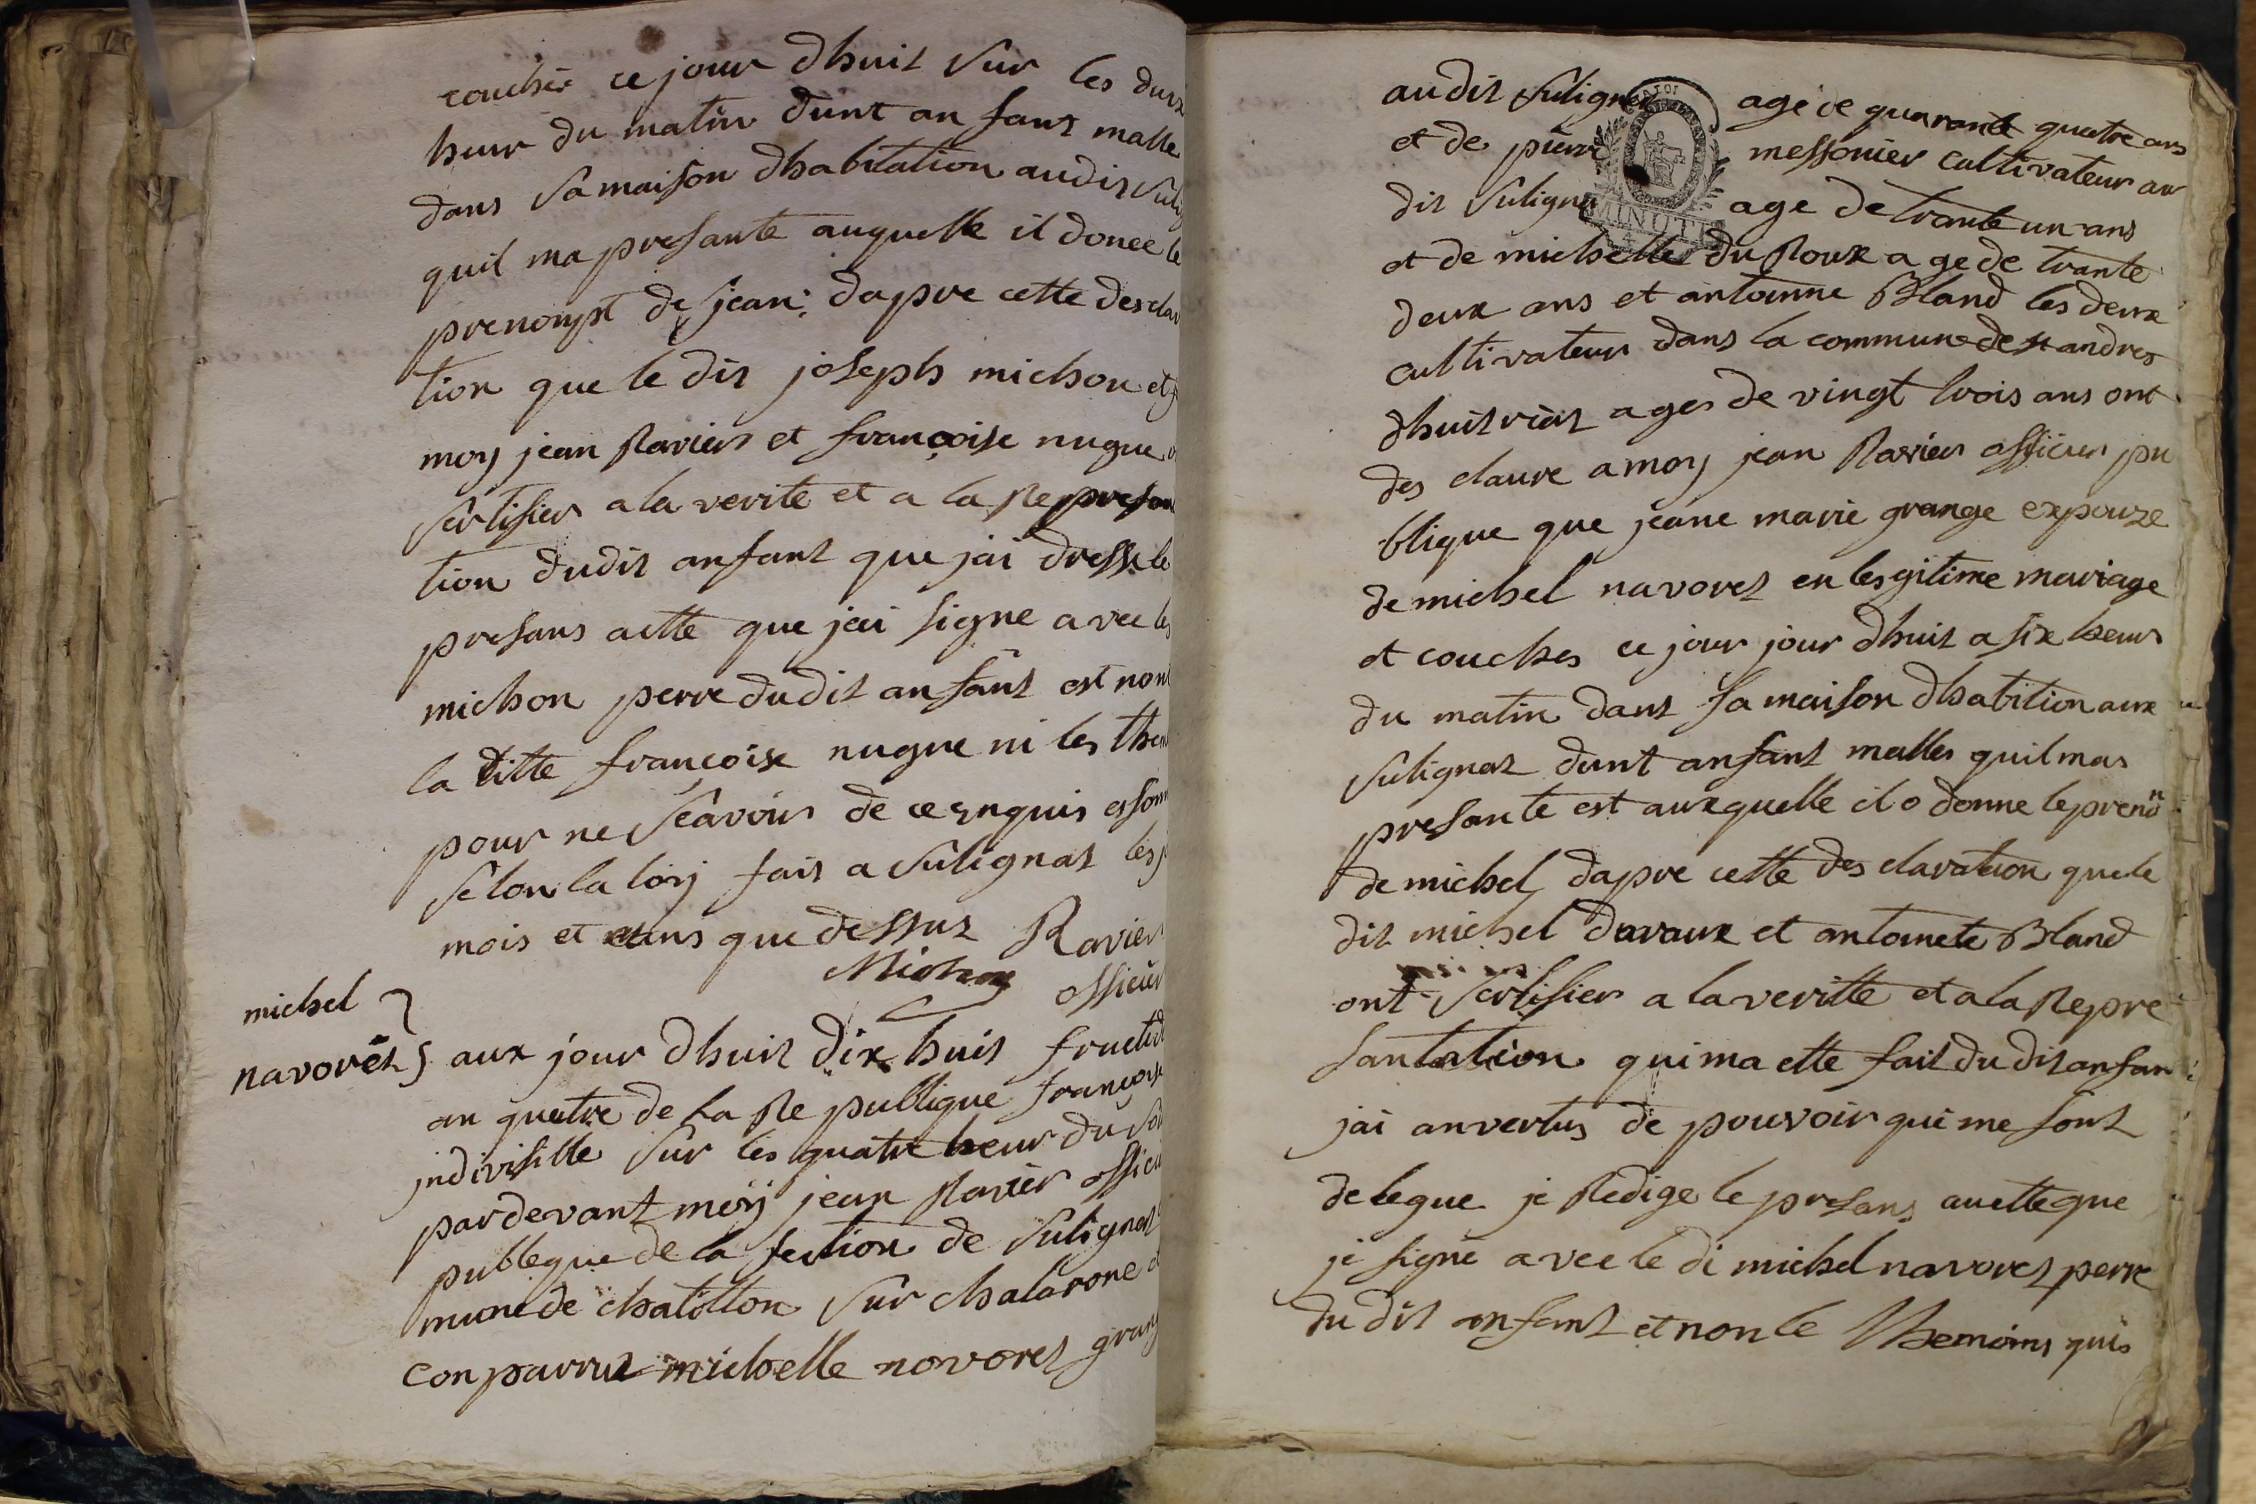 couchée ce jour dhuit sur les dux
heur du matin dunt an fant malle
dans sa maison dhabitation audit Suli
quil ma presante auquelle il donee le
prenompt de jean dapre cette desclar
tion que le dit joseph michon et
moy jean Ravier et françoise nugue
sertifier a la verite et a la Represan
tion dudit anfant que jai dresse le
presans actte que jai signe avec les
michon perre dudit anfant est non
la ditte françoise nugue ni les them
pour ne scavoir de ce enquis
selon la loiy fait a Sulignat les j
mois et ans que dessus Ravier
Michon officier
michel
navoret
aux jour dhuit dix huit fructid
an quatre de la Re publique françoise
jndivisille sur les quatre heur du soi
pardevant moy jean Ravier officie
publeque de la section de Sulignat
mune de chatillon sur chalarone
conparrut michelle navoret grang
audit Sulignat age de quarante quatre ans
et de pierre messonier cultivateur au
dit Sulignat age de trante un ans
MINUTE
et de michelle du Roux a ge de trante
deux ans et antoinne Bland les deux
cultivateur dans la commune de st andres
dhuit riat ages de vingt trois ans ont
des claure a moy jean Ravier officier pu
blique que jeane marie grange expouze
de michel navoret en lesgitime mariage
et couches ce jour jour dhuit a six heur
du matin dans sa maison dhabition aux
Sulignat dunt anfant malles quil mas
presante est auxquelle il o donne le prenon
de michel dapre cette des claration que le
dit michel davaux et antoinete Bland
ont sertifier a la veritte et a la Repre
santation qui ma ette fait du dit anfan
jai anvertus de pouvoir qui me sont
delegue je Redige le presans auette que
je signe avec le di michel navoret perre
du dit anfant et non le themoins quis